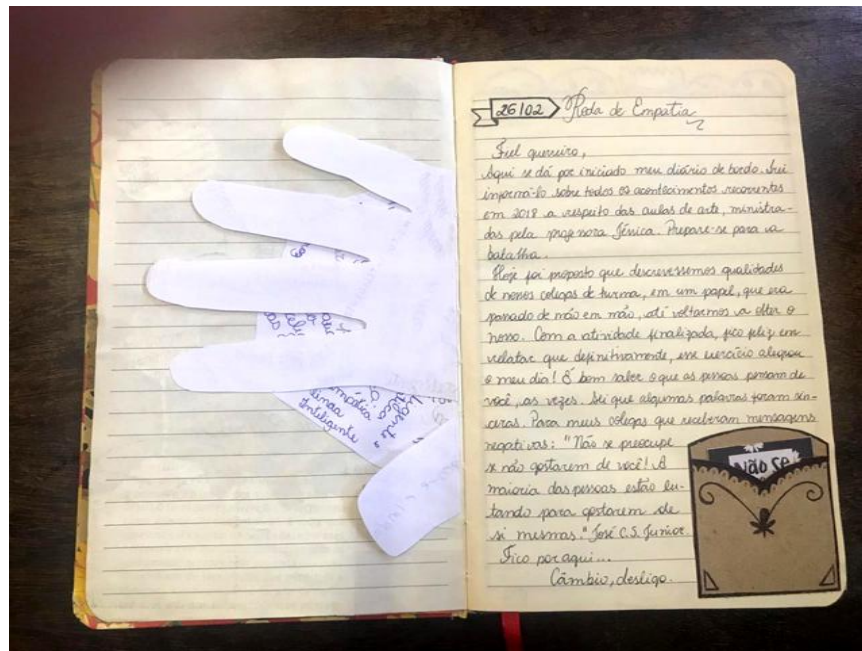 gente,
simpática
linda
Inteligente
26/02 Roda de Empatia
Fiel guerreiro,
Aqui se dá por iniciado meu diário de bordo. Irei
informá-lo sobre todos os acontecimentos recorrentes
em 2018 a respeito das aulas de arte, ministra-
das pela professora Jénica. Prepare-se para a
batalha.
Hoje foi proposto que descrevessemos qualidades
de nossos colegas de turma, em um papel, que era
passado de mão em mão, até voltarmos a obter o
nosso. Com a atividade finalizada, fico feliz em
relatar que definitivamente, esse exercício alegrou
o meu dia! É bom saber o que as pessoas pensam de
você, as vezes. Sei que algumas palavras foram sin-
ceras. Para meus colegas que receberam mensagens
negativas: "Não se preocupe
se não gostarem de você! A
maioria das pessoas estão lu-
tando para gostarem de
si mesmas." José C.S. Junior.
Fico por aqui...
Câmbio, desligo.
não se